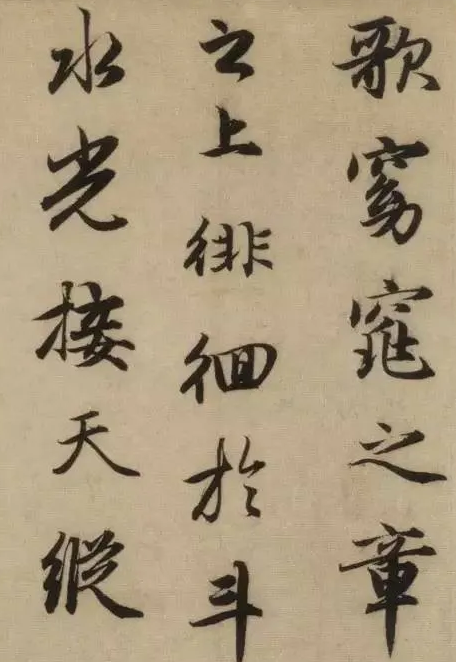 歌窈窕之章
之上徘徊於斗
水光接天縱